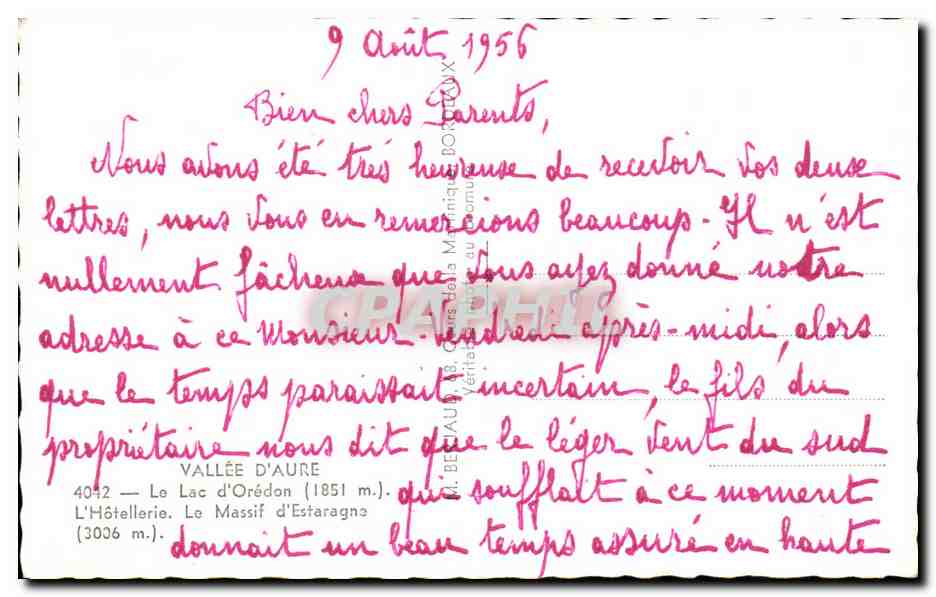 9 Août 1956
Bien chers Parents,
Nous avons été très heureuse de recevoir vos deux
lettres, nous vous en remercions beaucoup - Il n'est
nullement fâcheux que vous ayez donné notre
adresse à ce Monsieur - Vendredi après-midi, alors
que le temps paraissait incertain, le fils du
propriétaire nous dit que le léger vent du sud
qui soufflait à ce moment
donnait un beau temps assuré en haute
VALLÉE D'AURE
4042 — Le Lac d'Orédon (1851 m.).
L'Hôtellerie. Le Massif d'Estaragne
(3006 m.).
M. BERJAUD, 68, Cours de la Martinique, BORDEAUX
Véritable photo au bromure
CPAPHIL